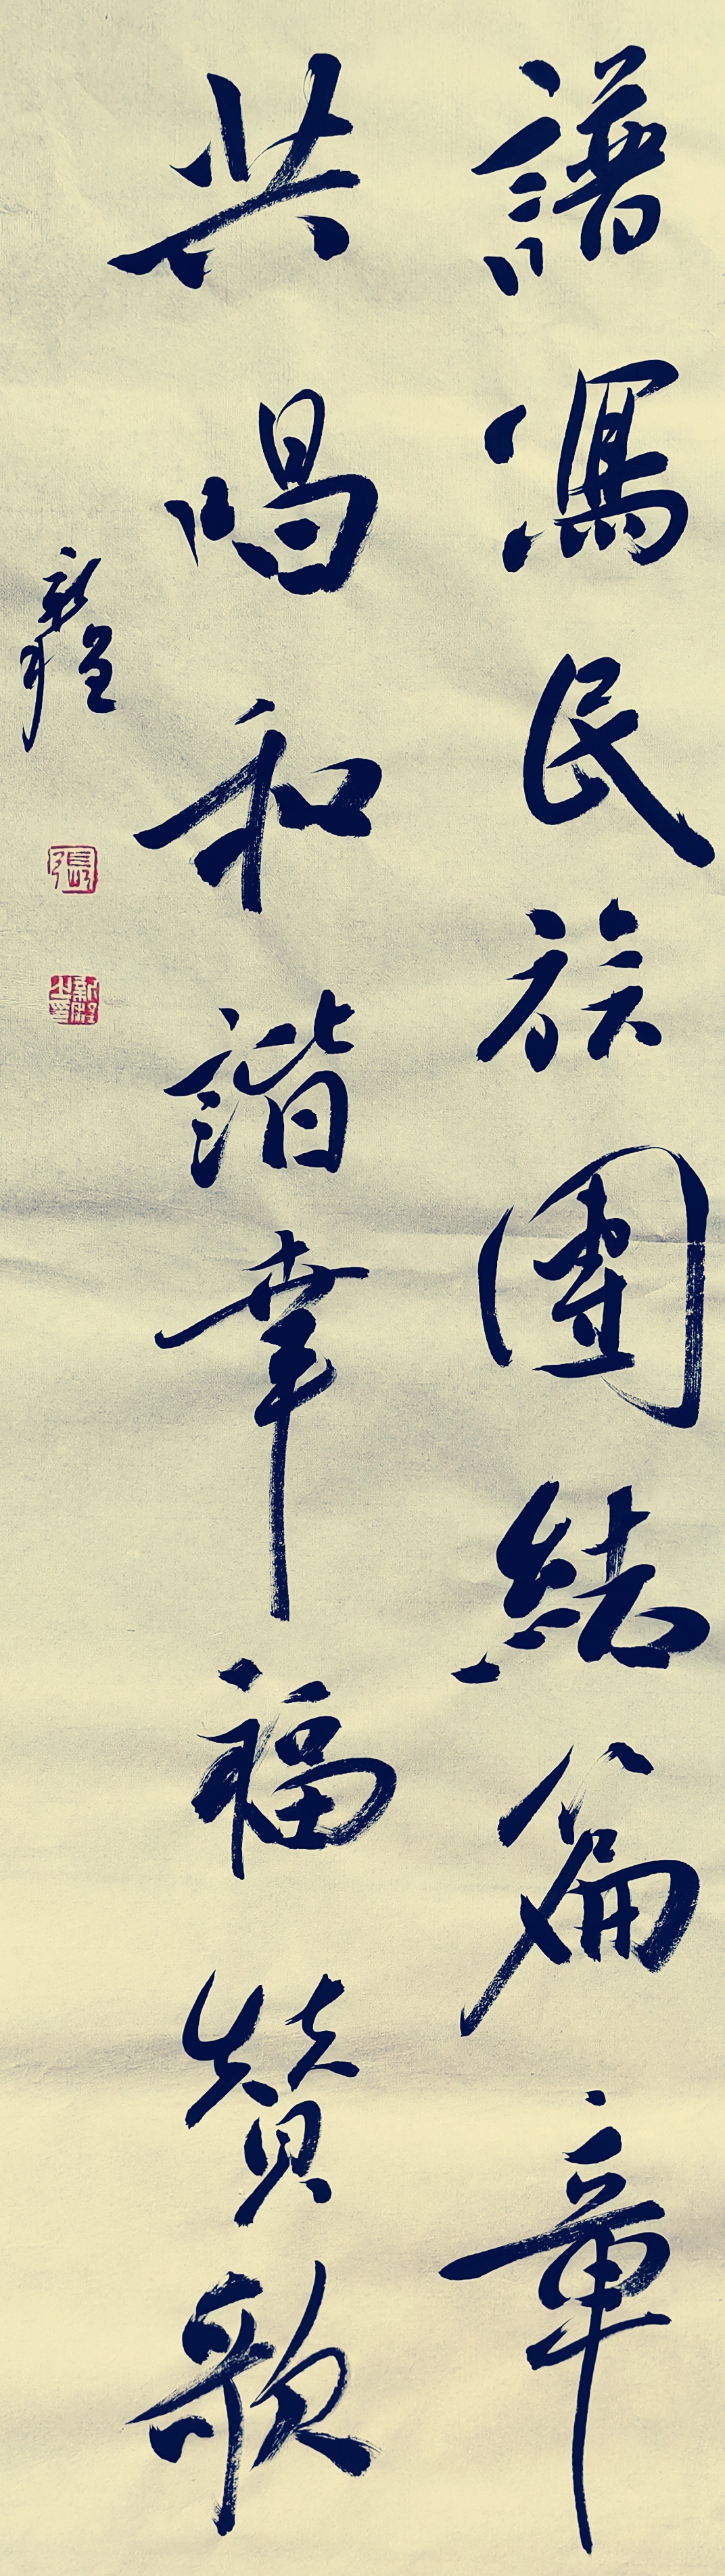 譜寫民族團結篇章
共唱和諧幸福贊歌
新程
張
新程之印